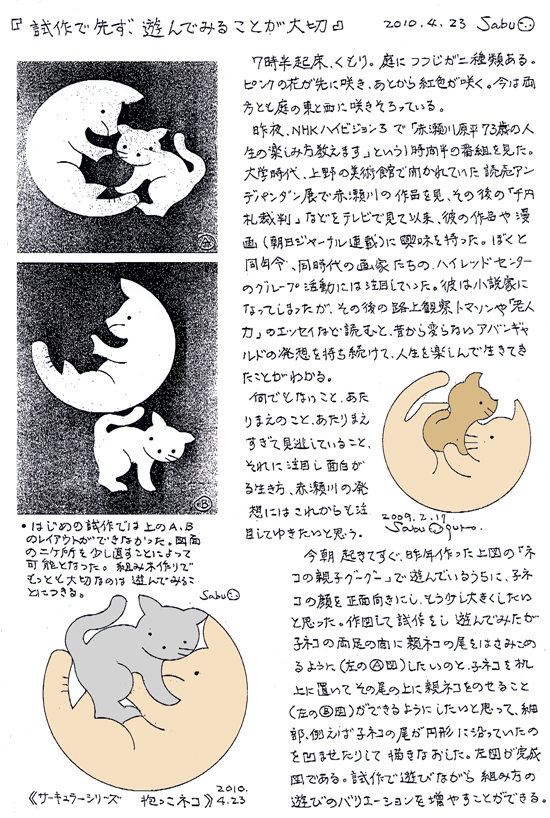 『試作で先ず、遊んでみることが大切』
2010.4.23 Sabu
7時半起床、くもり。庭につつじが二種類ある。
ピンクの花が先に咲き、あとから紅色が咲く。今は両
方とも庭の東と西に咲きそろっている。
昨夜、NHKハイビジョン3で「赤瀬川原平73歳の人
生の楽しみ方教えます」という1時間半の番組を見た。
大学時代、上野の美術館で開かれていた読売アン
デパンダン展で赤瀬川の作品を見、その後の「千円
札裁判」などをテレビで見て以来、彼の作品や漫
画(朝日ジャーナル連載)に興味を持った。ぼくと
同年令、同時代の画家たちの、ハイレッドセンター
のグループ活動には注目していた。彼は小説家に
なってしまったが、その後の路上観察トマソンや「老人
力」のエッセイなど読むと、昔から変らないアバンギャ
ルドの発想を持ち続けて、人生を楽しんで生きてき
たことがわかる。
何でもないこと、あた
りまえのこと、あたりまえ
すぎて見逃していること、
それに注目し面白が
る生き方、赤瀬川の発
想にはこれからも注
目してゆきたいと思う。
2009.2.19
Sabu Oguro.
今朝起きてすぐ、昨年作った上図の「ネ
コの親子グーグー」で遊んでいるうちに、子ネ
コの顔を正面向きにし、もう少し大きくしたい
と思った。作図して試作をし遊んでみたが
子ネコの両足の間に親ネコの尾をはさみこめ
るように(左のⒶ図)したいのと、子ネコを机
上に置いてその尾の上に親ネコをのせること
(左のⒷ図)ができるようにしたいと思って、細
部、例えば子ネコの尾が円形に沿っていたの
を凹ませたりして描きなおした。左図が完成
図である。試作で遊びながら組み方の
遊びのバリエーションを増やすことができる。
Ⓐ
Ⓑ
•はじめの試作では上のA、B
のレイアウトができなかった。図面
の二ヶ所を少し直すことによって
可能となった。組み木作りで
もっとも大切なのは遊んでみるこ
とにつきる。
Sabu
《サーキュラーシリーズ 抱っこネコ》
2010.
4.23